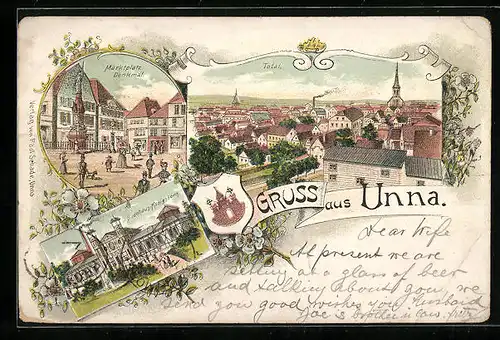 Marktplatz
Denkmal.
Total.
GRUSS aus Unna.
Dear Wife
At present we are
setting at a glass of beer
and talking about you, we
send you good wishes your husband
Joe is brother in law